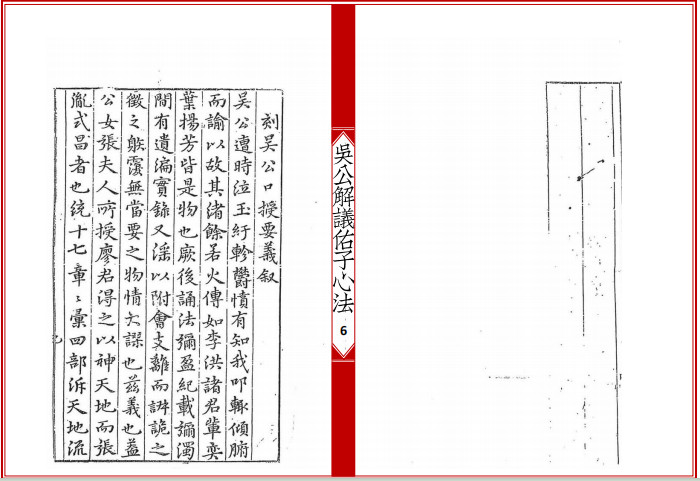 刻吴公口授要義叙
吴公遭時泣玉紆軫欝憤有知我叩輙傾腑
而諭以故其渚餘若火傳如李洪諸君輩奕
葉揚芳皆是物也厥後誦法彌盈紀載彌濁
間有遺編實錄又滛以附會支離而詊詭之
徵之躲覆無當要之物情大謬也兹義也葢
公女張夫人所授廖君得之以神天地而張
胤式昌者也统十七章〻彙四部泝天地流
吳公解議佑子心法
6